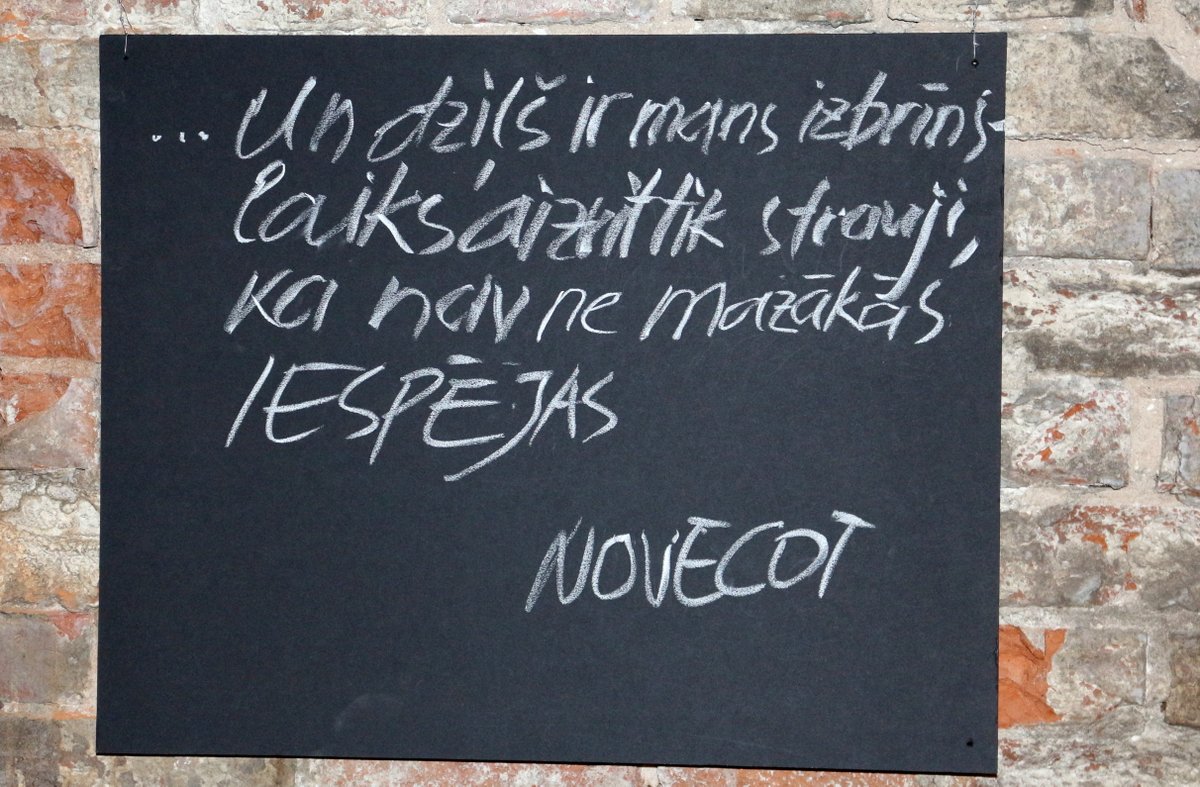 ... Un dziļš ir mans izbrīns-
laiks aizrit tik strauji,
ka nav ne mazākās
IESPĒJAS
NOVECOT